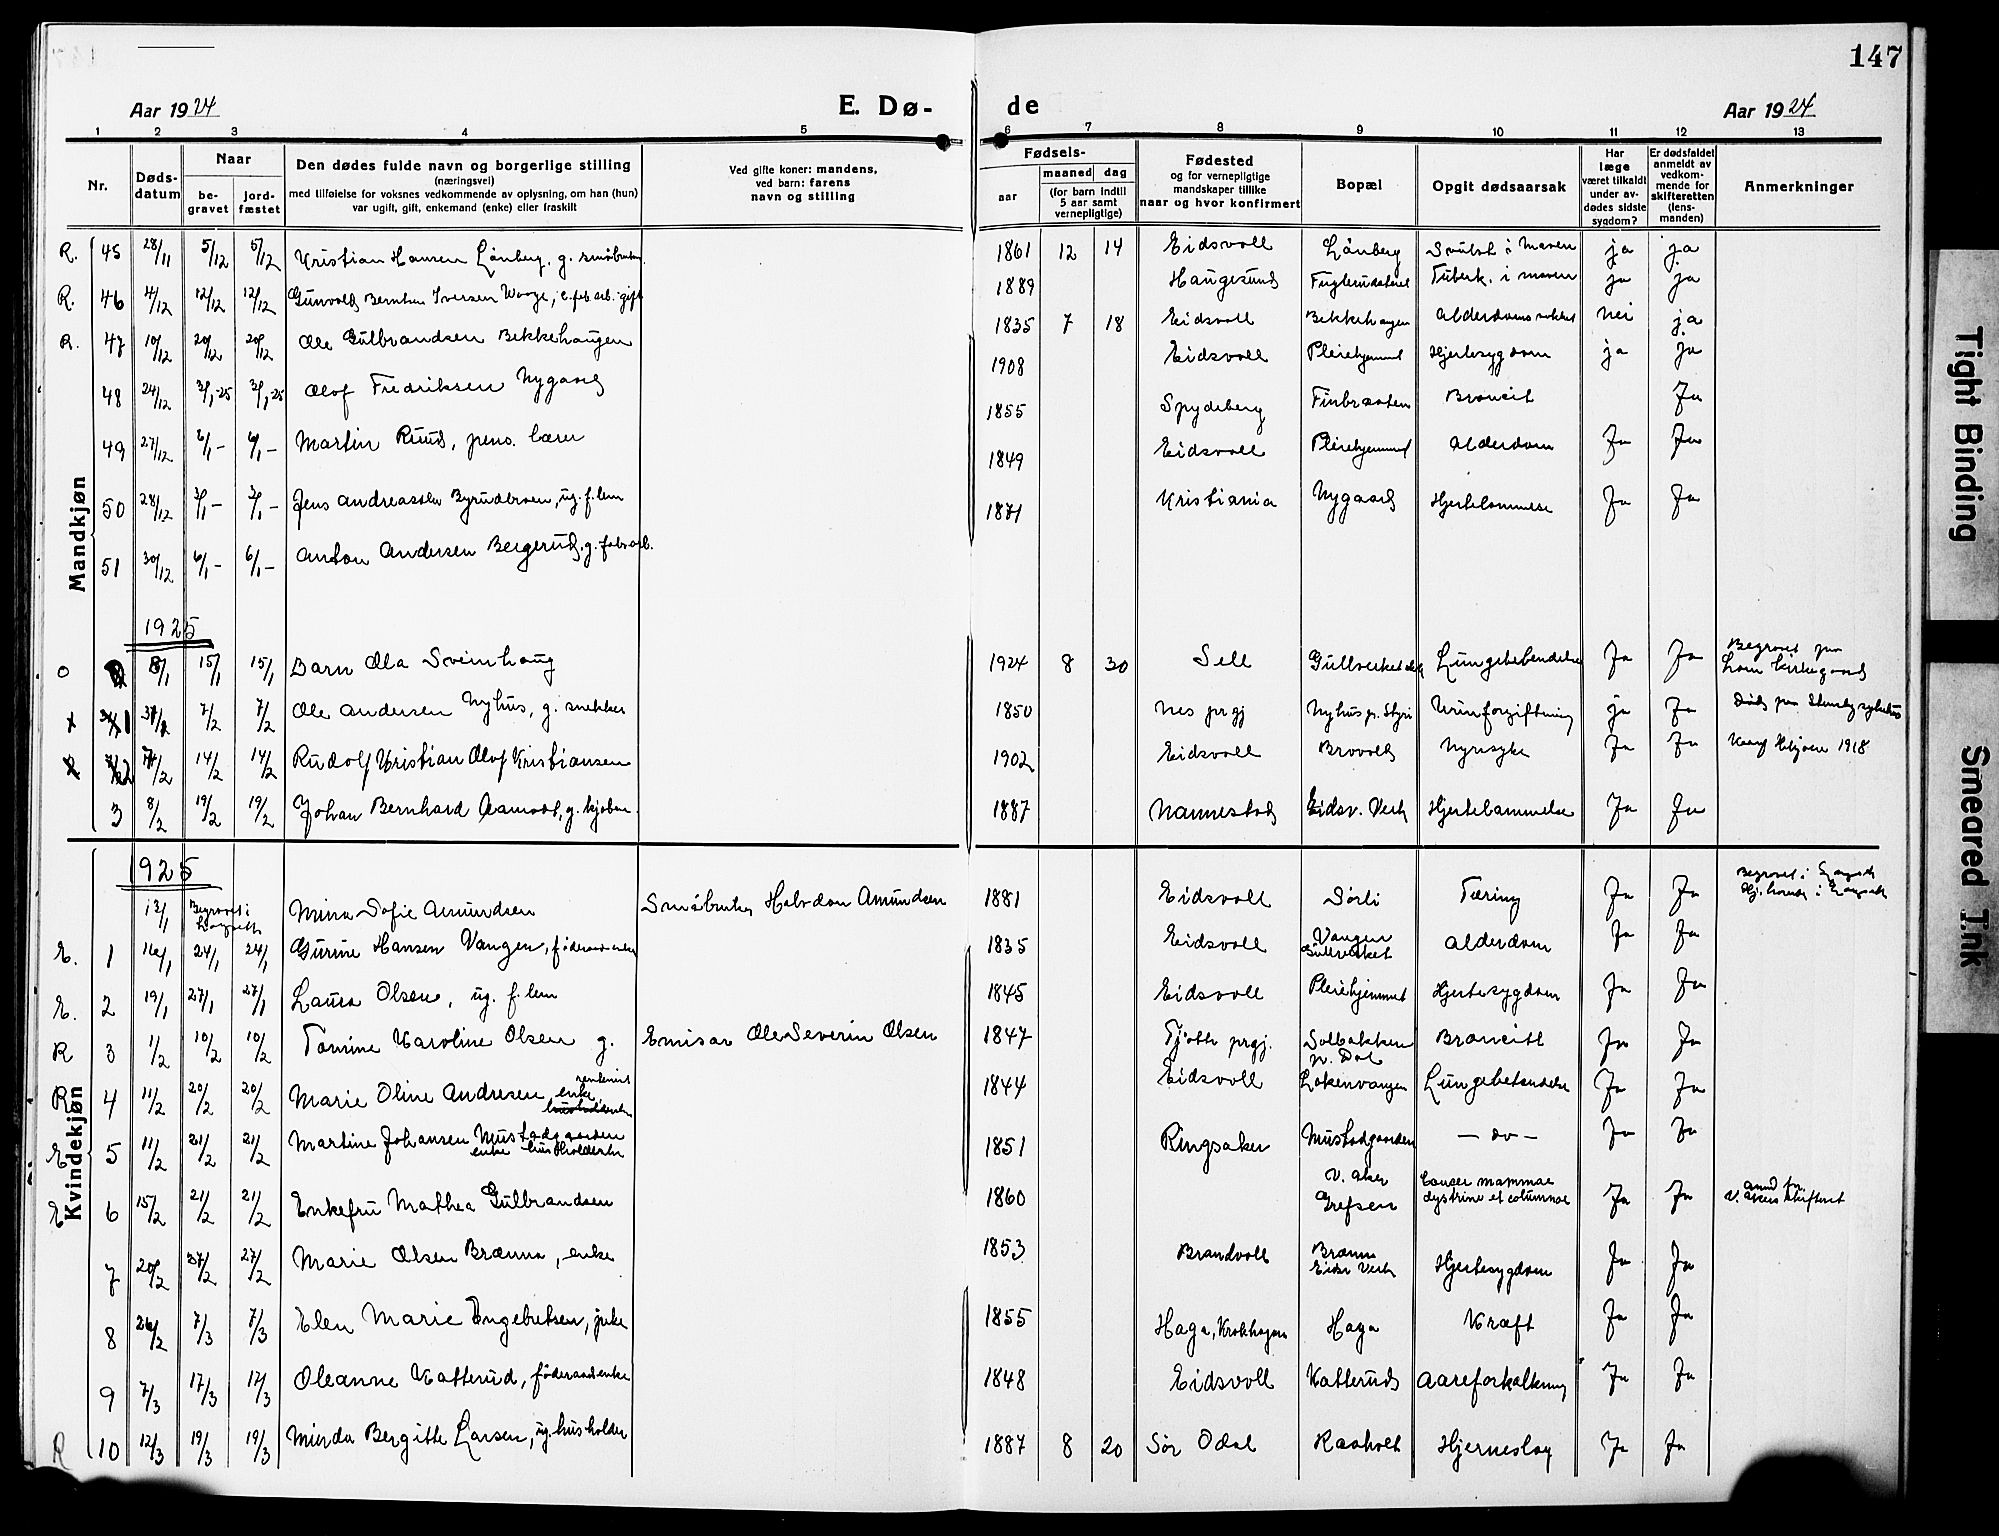 147
Aar 1924 E. Dø- de Aar 1924
1 2 3 4 5 6 7 8 9 10 11 12 13
Nr.
Døds-
datum
Naar
be-
gravet
jord-
fæstet
Den dødes fulde navn og borgerlige stilling
(næringsvei)
med tilføielse for voksnes vedkommende av oplysning, om han (hun)
var ugift, gift, enkemand (enke) eller fraskilt
Ved gifte koner: mandens,
ved barn: farens
navn og stilling
Fødsels-
aar
maaned dag
(for barn indtil
5 aar samt
vernepligtige)
Fødested
og for vernepligtige
mandskaper tillike
naar og hvor konfirmert
Bopæl
Opgit dødsaarsak
Har
læge
været tilkaldt
under av-
dødes sidste
sygdom?
Er dødsfaldet
anmeldt av
vedkom-
mende for
skifteretten
(lens-
manden)
Anmerkninger
Mandkjøn
R. 45 28/11 5/12 5/12 Kristian Hansen Lønberg, g. småbruker 1861 12 14 Eidsvoll Lønberg Svulst i maven ja ja
R. 46 4/12 12/12 12/12 Gunvald Bernton Iversen e. fab.arb. gift 1889 Haugesund Tuberk. i maven ja ja
R. 47 10/12 20/12 20/12 Ole Gulbrandsen Bekkehaugen 1835 7 18 Eidsvoll Bekkehaugen Alderdomssvakhet nei ja
48 24/12 3/1-25 3/1-25 Olof Fredriksen Nygaard 1908 Eidsvoll Pleiehjemmet Hjertesygdom ja ja
49 27/12 6/1- 6/1- Martin Ruud, pens. lærer 1855 Spydeberg Finbraaten Broncit Ja
50 28/12 3/1- 3/1- Jens Andreassen Byrudbroen, ug. f. lem 1849 Eidsvoll Pleiehjemmet Alderdom Ja Ja
51 30/12 6/1- 6/1- Anton Andersen Bergerud, g. fabr.arb. 1871 Kristiania Nygaard Hjertelammelse Ja Ja
1925
O 8/1 15/1 15/1 Barn Ola Sveinhaug 1924 8 30 Sell Gullverket Lungebetendelse Ja Ja Begravet paa
Lom kirkegaard
x 1 7/2 7/2 Ole Andersen Nyhus, g. snekker 1850 Nes prgj Nyhus p. Styri Urinforgiftning ja Ja Død paa Stensby sykehus
x 2 14/2 14/2 Rudolf Kristian Olof Kristiansen 1902 Eidsvoll Brovold Nyresyke Ja Ja 1918
3 8/2 19/2 19/2 Johan Bernhard Aamodt, g. 1887 Nannestad Eidsv. Verk Hjertelammelse Ja Ja
Kvindekjøn
1925
13/1 Begravet i
Langseth Mina Sofie Amundsen Småbruker Halvdan Amundsen 1881 Eidsvoll Dørli Tæring Ja Ja Begravet i Langseth
i Langseth
E. 1 16/1 24/1 24/1 Gurine Hansen Vangen, føderaadsenke 1835 Eidsvoll Vangen
Gullverket Alderdom Ja Ja
E. 2 19/1 27/1 27/1 Laura Olsen, ug. f. lem 1845 Eidsvoll Pleiehjemmet Hjertesygdom Ja Ja
R 3 1/2 10/2 10/2 Tomine Karoline Olsen g. Emisær Ole Severin Olsen 1847 Tjøtta prgj. Solbakken
p. Dal Broncitt Ja Ja
R 4 11/2 20/2 20/2 Marie Oline Andresen enke 1844 Eidsvoll Løkenvangen Lungebetendelse Ja Ja
E 5 11/2 21/2 21/2 Martine Johansen Mustadgaarden
enke husholderske 1851 Ringsaker Mustadgaarden - do - Ja Ja
E 6 15/2 21/2 21/2 Enkefru Mathea Gulbrandsen 1860 V. Aker
Grefsen Cancer mammae
et columnae Ja Ja Anm. for
V. Akers skifteret
7 20/2 27/2 27/2 Marie Olsen Brænna, enke 1853 Brandvoll Brænna
Eidsv Verk Hjertesygdom Ja Ja
8 26/2 7/3 7/3 Elen Marie Engebretsen, pike 1855 Haga, Krokhagen Haga Kræft Ja Ja
9 7/3 17/3 17/3 Oleanne Katterud, føderaadsenke 1848 Eidsvoll Katterud Aareforkalkning Ja Ja
R 10 12/3 19/3 19/3 Minda Bergitte Larsen, ug. husholder 1887 8 20 Sør Odal Raaholt Hjerneslag Ja Ja
Tight Binding
Smeared Ink